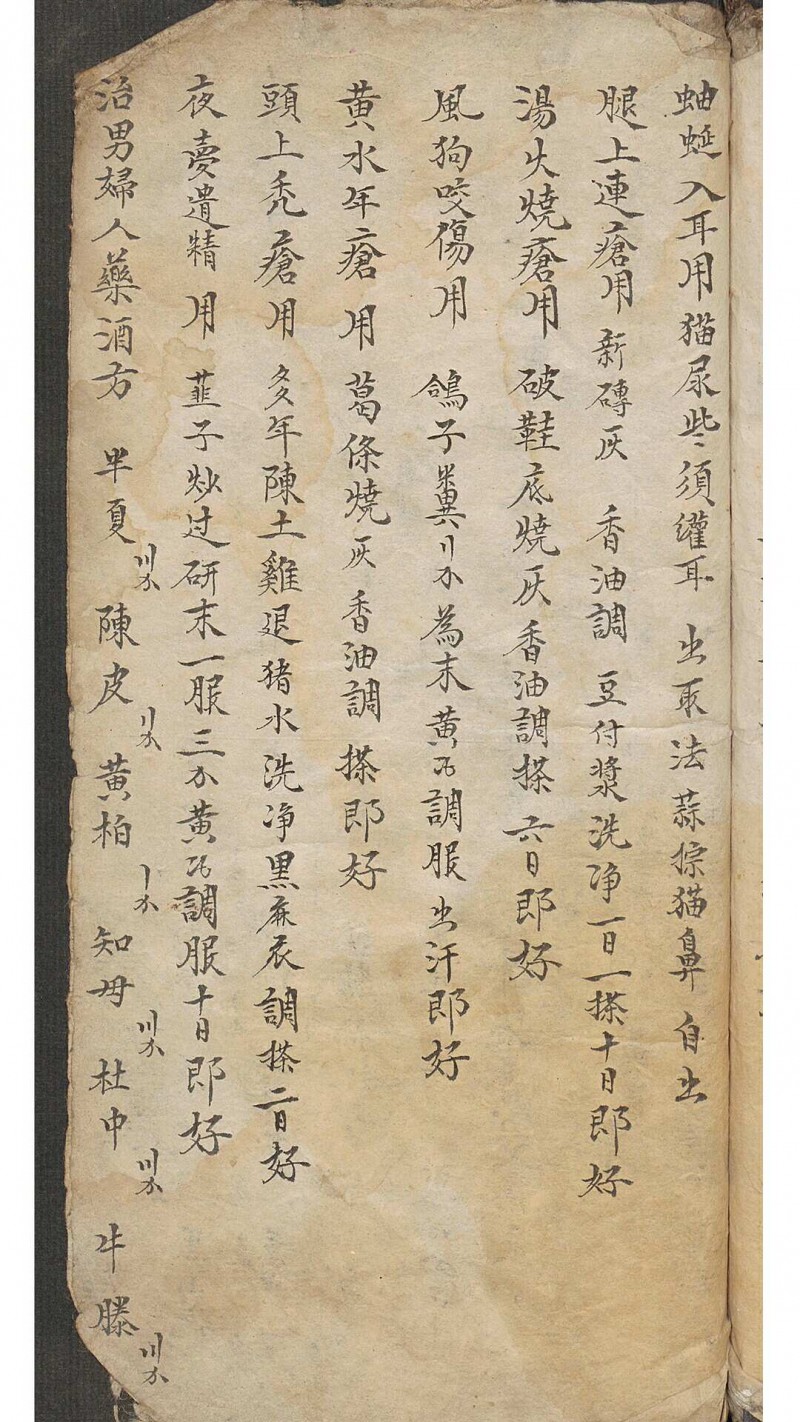 蚰蜒入耳用猫尿些須鑵耳 出取法蒜捺猫鼻自出
腿上連瘡用 新磚灰 香油調 豆付漿洗净一日一搽十日即好
湯火燒瘡用 破鞋底燒灰香油調搽 六日即好
風狗咬傷用 鴿子糞〢分為末黄酒調服出汗即好
黄水年瘡用 葛條燒灰香油調搽即好
頭上秃瘡用 多年陳土雞退猪水洗净黑麻衣調搽二日好
夜夢遺精用 韮子炒过研末一服三分黄酒調服十日即好
治男婦人藥酒方 半夏〣分 陳皮〢分 黄柏〡分 知母〣分 杜中〣分 牛膝〣分